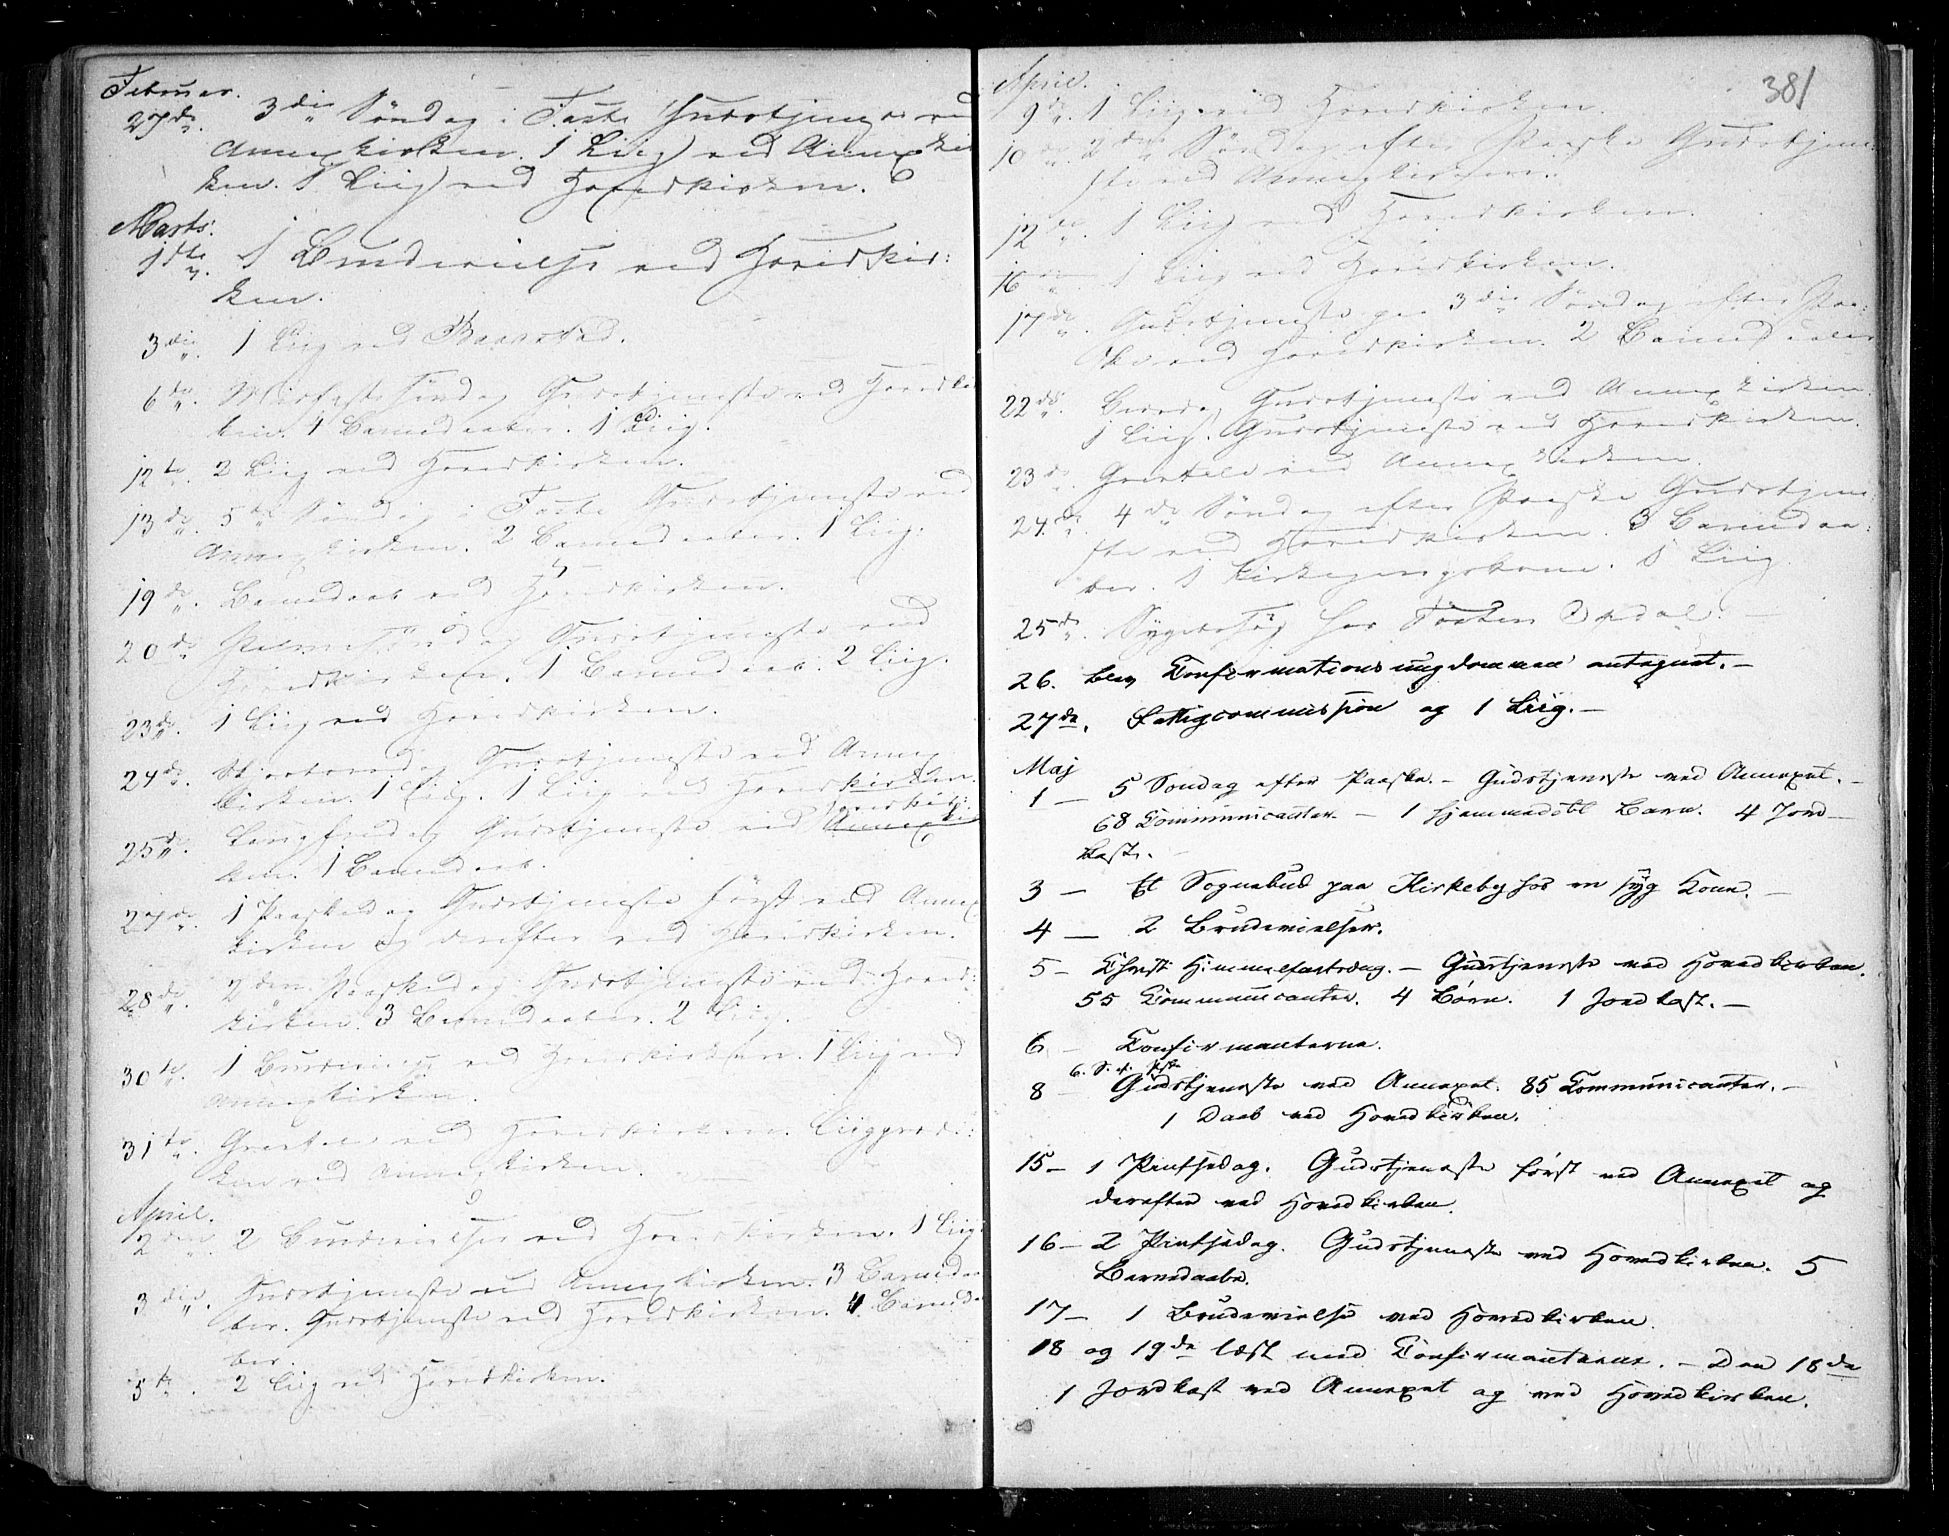 Februar.
27de. 3die Søndag i Faste Gudstjeneste ved
Annexkirken. 1 Liig ved Annexkir
ken. 1 Liig ved Hovedkirken.
Marts.
1ste. 1 Brudevielse ved Hovedkir:
ken.
3die. 1 Liig ved
6te. Midfaste Søndag Gudstjeneste ved Hovedkir
ken. 4 Barnedaaber. 1 Liig.
12te. 2 Liig ved Hovedkirken.
13de. 5te Søndag i Faste Gudstjeneste ved
Annexkirken. 2 Barnedaaber. 1 Liig.
19de. Barnedaab ved Hovedkirken.
20de. Palmesøndag Gudstjeneste ved
Hovedkirken. 1 Barnedaab. 2 Liig.
23de. 1 Liig ved Hovedkirken.
24de. Skjærtorsdag Gudstjeneste ved Annex
kirken. 1 Liig. 1 Liig ved Hovedkirken.
Hovedkir:
25de. Langfredag Gudstjeneste ved Annexkir
ken. 1 Barnedaab.
27de. 1 Paaskedag Gudstjeneste først ved Annex
kirken og derefter ved Hovedkirken.
28de. 2den Paaskedag Gudstjeneste ved Hoved:
kirken. 3 Barnedaaber. 2 Liig.
30te. 1 Brudevielse ved Hovedkirken. 1 Liig ved
Annexkirken.
31te. ved Hovedkirken. Liigprædi:
ken ved Annexkirken.
April.
2den. 2 Brudevielser ved Hovedkirken. 1 Liig.
3die. Gudstjeneste ved Annexkirken. 3 Barnedaa
ber. Gudstjeneste ved Hovedkirken. 4 Barneda
ber.
5te. 2 Liig ved Hovedkirken.
April.
381
9de. 1 Liig ved Hovedkirken.
10de. 2den Søndag efter Paaske Gudstjene:
ste ved Annexkirken.
12te. 1 Liig ved Hovedkirken.
16 1 Liig ved Hovedkirken.
17de. Gudstjeneste paa 3die Søndag efter Paa:
ske ved Hovedkirken. 2 Barnedaaber
22de. Bededag Gudstjeneste ved Annexkirken.
1 Liig. Gudstjeneste ved Hovedkirken.
23de. ved Annexkirken.
24de. 4de Søndag efter Paaske Gudstjene:
ste ved Hovedkirken. 3 Barnedaa:
ber. 1 Kirkegangskone. 1 Liig
25de. Sygebesøg hos Opdal. —
26. blev Confirmationsungdommen antaget. —
27de. Fattigcommission og 1 Liig. —
Maj
1 — 5 Søndag efter Paaske. — Gudstjeneste ved Annexet. —
68 Communicanter. — 1 hjemmedøbt Barn. 4 Jord-
kast. —
3 — Et Sognebud paa Kirkeby hos en syg Kone. —
4 — 2 Brudevielser.
5 — Christi Himmelfartsdag. — Gudstjeneste ved Hovedkirken.
55 Communicanter. 4 Børn. 1 Jordkast. —
6 — Confirmanterne.
6. S. e. Paaske
8 — Gudstjeneste ved Annexet. 85 Communicanter. —
1 Daab ved Hovedkirken.
15 — 1 Pintsedag. Gudstjeneste først ved Annexet og
derefter ved Hovedkirken.
16 — 2 Pintsedag. Gudstjeneste ved Hovedkirken. 5
Barnedaabe.
17 — 1 Brudevielse ved Hovedkirken.
18 og 19de læst med Confirmanterne. — Den 18de
1 Jordkast ved Annexet og ved Hovedkirken.